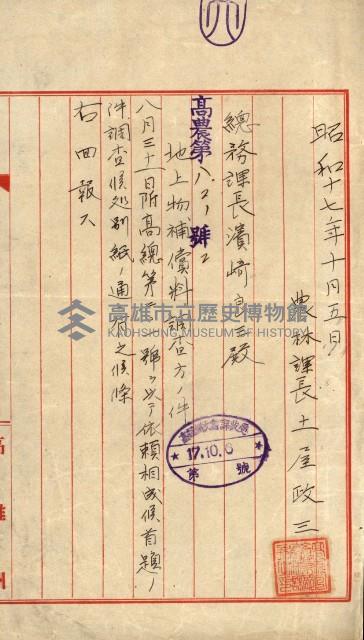 昭和十七年十月五日
農林課長土屋政三
總務課長濱崎良三殿
高農第八、二、號ノ二
地上物補償料調查方ノ件
八月三十一日附高總第 號ヲ以テ依賴相成候首題ノ
件調查候処別紙ノ通有之候條
右回報ス
高雄市立歷史博物館
KAOHSIUNG MUSEUM OF HISTORY
17.10.6
第 號
高雄州